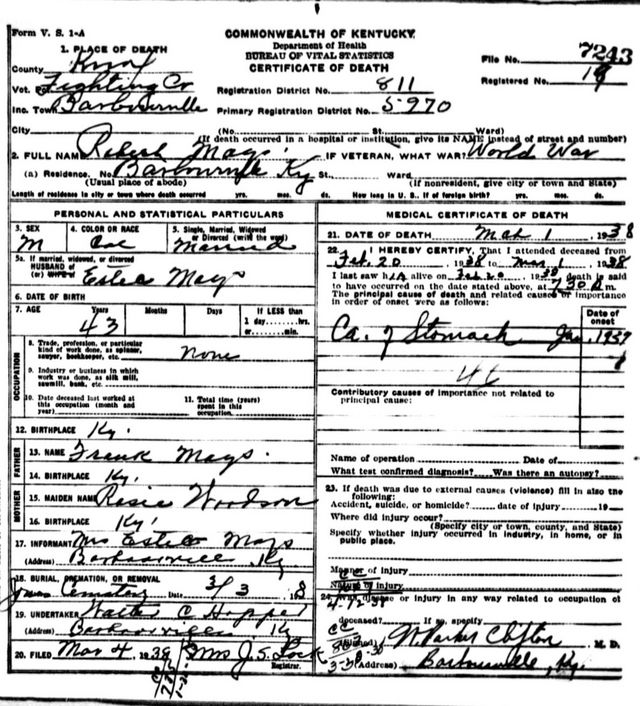 Form V. S. 1-A
COMMONWEALTH OF KENTUCKY
Department of Health
BUREAU OF VITAL STATISTICS
CERTIFICATE OF DEATH
File No. 7243
Registered No. 19
1. PLACE OF DEATH
County Knox
Vot. Fighting Cr
Registration District No. 811
Inc. Town Barbourville Primary Registration District No. 5970
City (No. St. Ward)
(If death occurred in a hospital or institution, give its NAME instead of street and number)
2. FULL NAME Robert Mays IF VETERAN, WHAT WAR? World War
(a) Residence. No. Barbourville Ky St. Ward
(Usual place of abode) (If nonresident, give city or town and State)
Length of residence in city or town where death occurred yrs. mos. ds. How long in U. S., if of foreign birth? yrs. mos. ds.
PERSONAL AND STATISTICAL PARTICULARS
3. SEX M
4. COLOR OR RACE Col
5. Single, Married, Widowed, or Divorced (write the word) Married
5a. If married, widowed, or divorced
HUSBAND of
(or) WIFE of Estee Mays
6. DATE OF BIRTH
7. AGE Years 43 Months Days If LESS than 1 day......hrs. or......min.
OCCUPATION
8. Trade, profession, or particular kind of work done, as spinner, sawyer, bookkeeper, etc. None
9. Industry or business in which work was done, as silk mill, sawmill, bank, etc.
10. Date deceased last worked at this occupation (month and year)
11. Total time (years) spent in this occupation
12. BIRTHPLACE Ky.
FATHER
13. NAME Frank Mays
14. BIRTHPLACE Ky.
MOTHER
15. MAIDEN NAME Rosie Woodson
16. BIRTHPLACE Ky.
17. INFORMANT Mrs Estee Mays
(Address) Barbourville Ky
18. BURIAL, CREMATION, OR REMOVAL
Cemetery Date 3/3 1938
19. UNDERTAKER Walter C Hopper
(Address) Barbourville Ky
20. FILED Mar 4, 1938 Mrs J. S. Lock
Registrar.
MEDICAL CERTIFICATE OF DEATH
21. DATE OF DEATH Mch 1, 1938
22. I HEREBY CERTIFY, That I attended deceased from
Feb. 20, 1938 to Mar 1, 1938
I last saw him alive on Feb 20, 1938 death is said
to have occurred on the date stated above, at 7:30 m.
The principal cause of death and related causes of importance
in order of onset were as follows:
Date of onset
Ca. of Stomach Jan. 1937
46
Contributory causes of importance not related to principal cause:
Name of operation Date of
What test confirmed diagnosis? Was there an autopsy?
23. If death was due to external causes (violence) fill in also the following:
Accident, suicide, or homicide? date of injury 19
Where did injury occur?
(Specify city or town, county, and State)
Specify whether injury occurred in industry, in home, or in public place.
Manner of injury
Nature of injury
24. Was disease or injury in any way related to occupation of
deceased? If so, specify
(Signed) W. Parker Clifton M. D.
(Address) Barbourville, Ky.